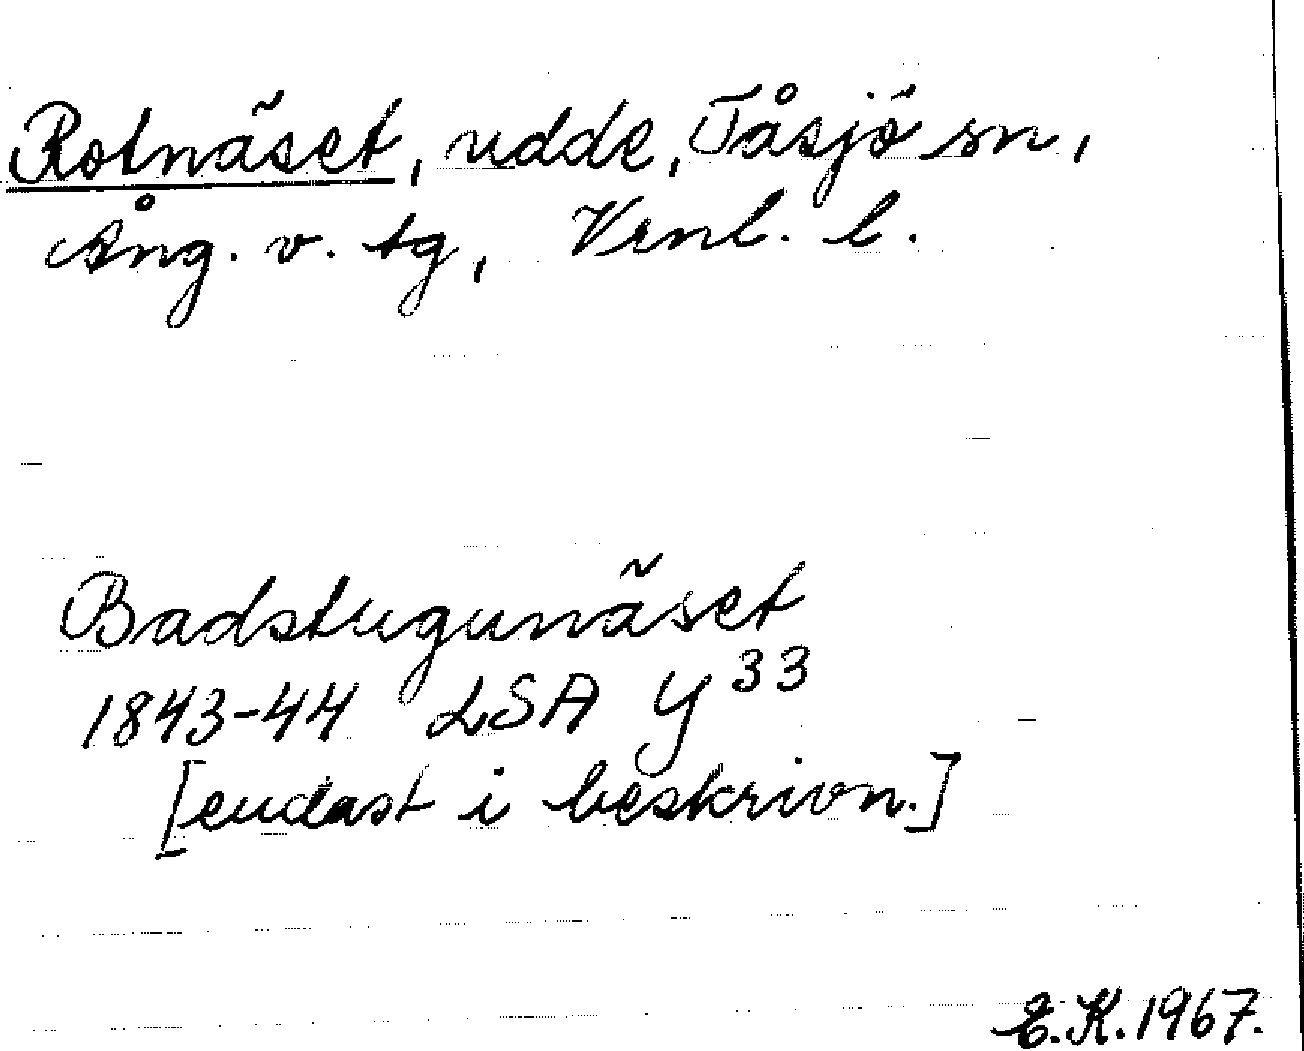 Rotnäset, udde, Tåsjö sn,
Ång. v. tg, Vrnl. l.
Badstugunäset
1843-44 LSA Y33
[endast i beskrivn.]
E.K. 1967.